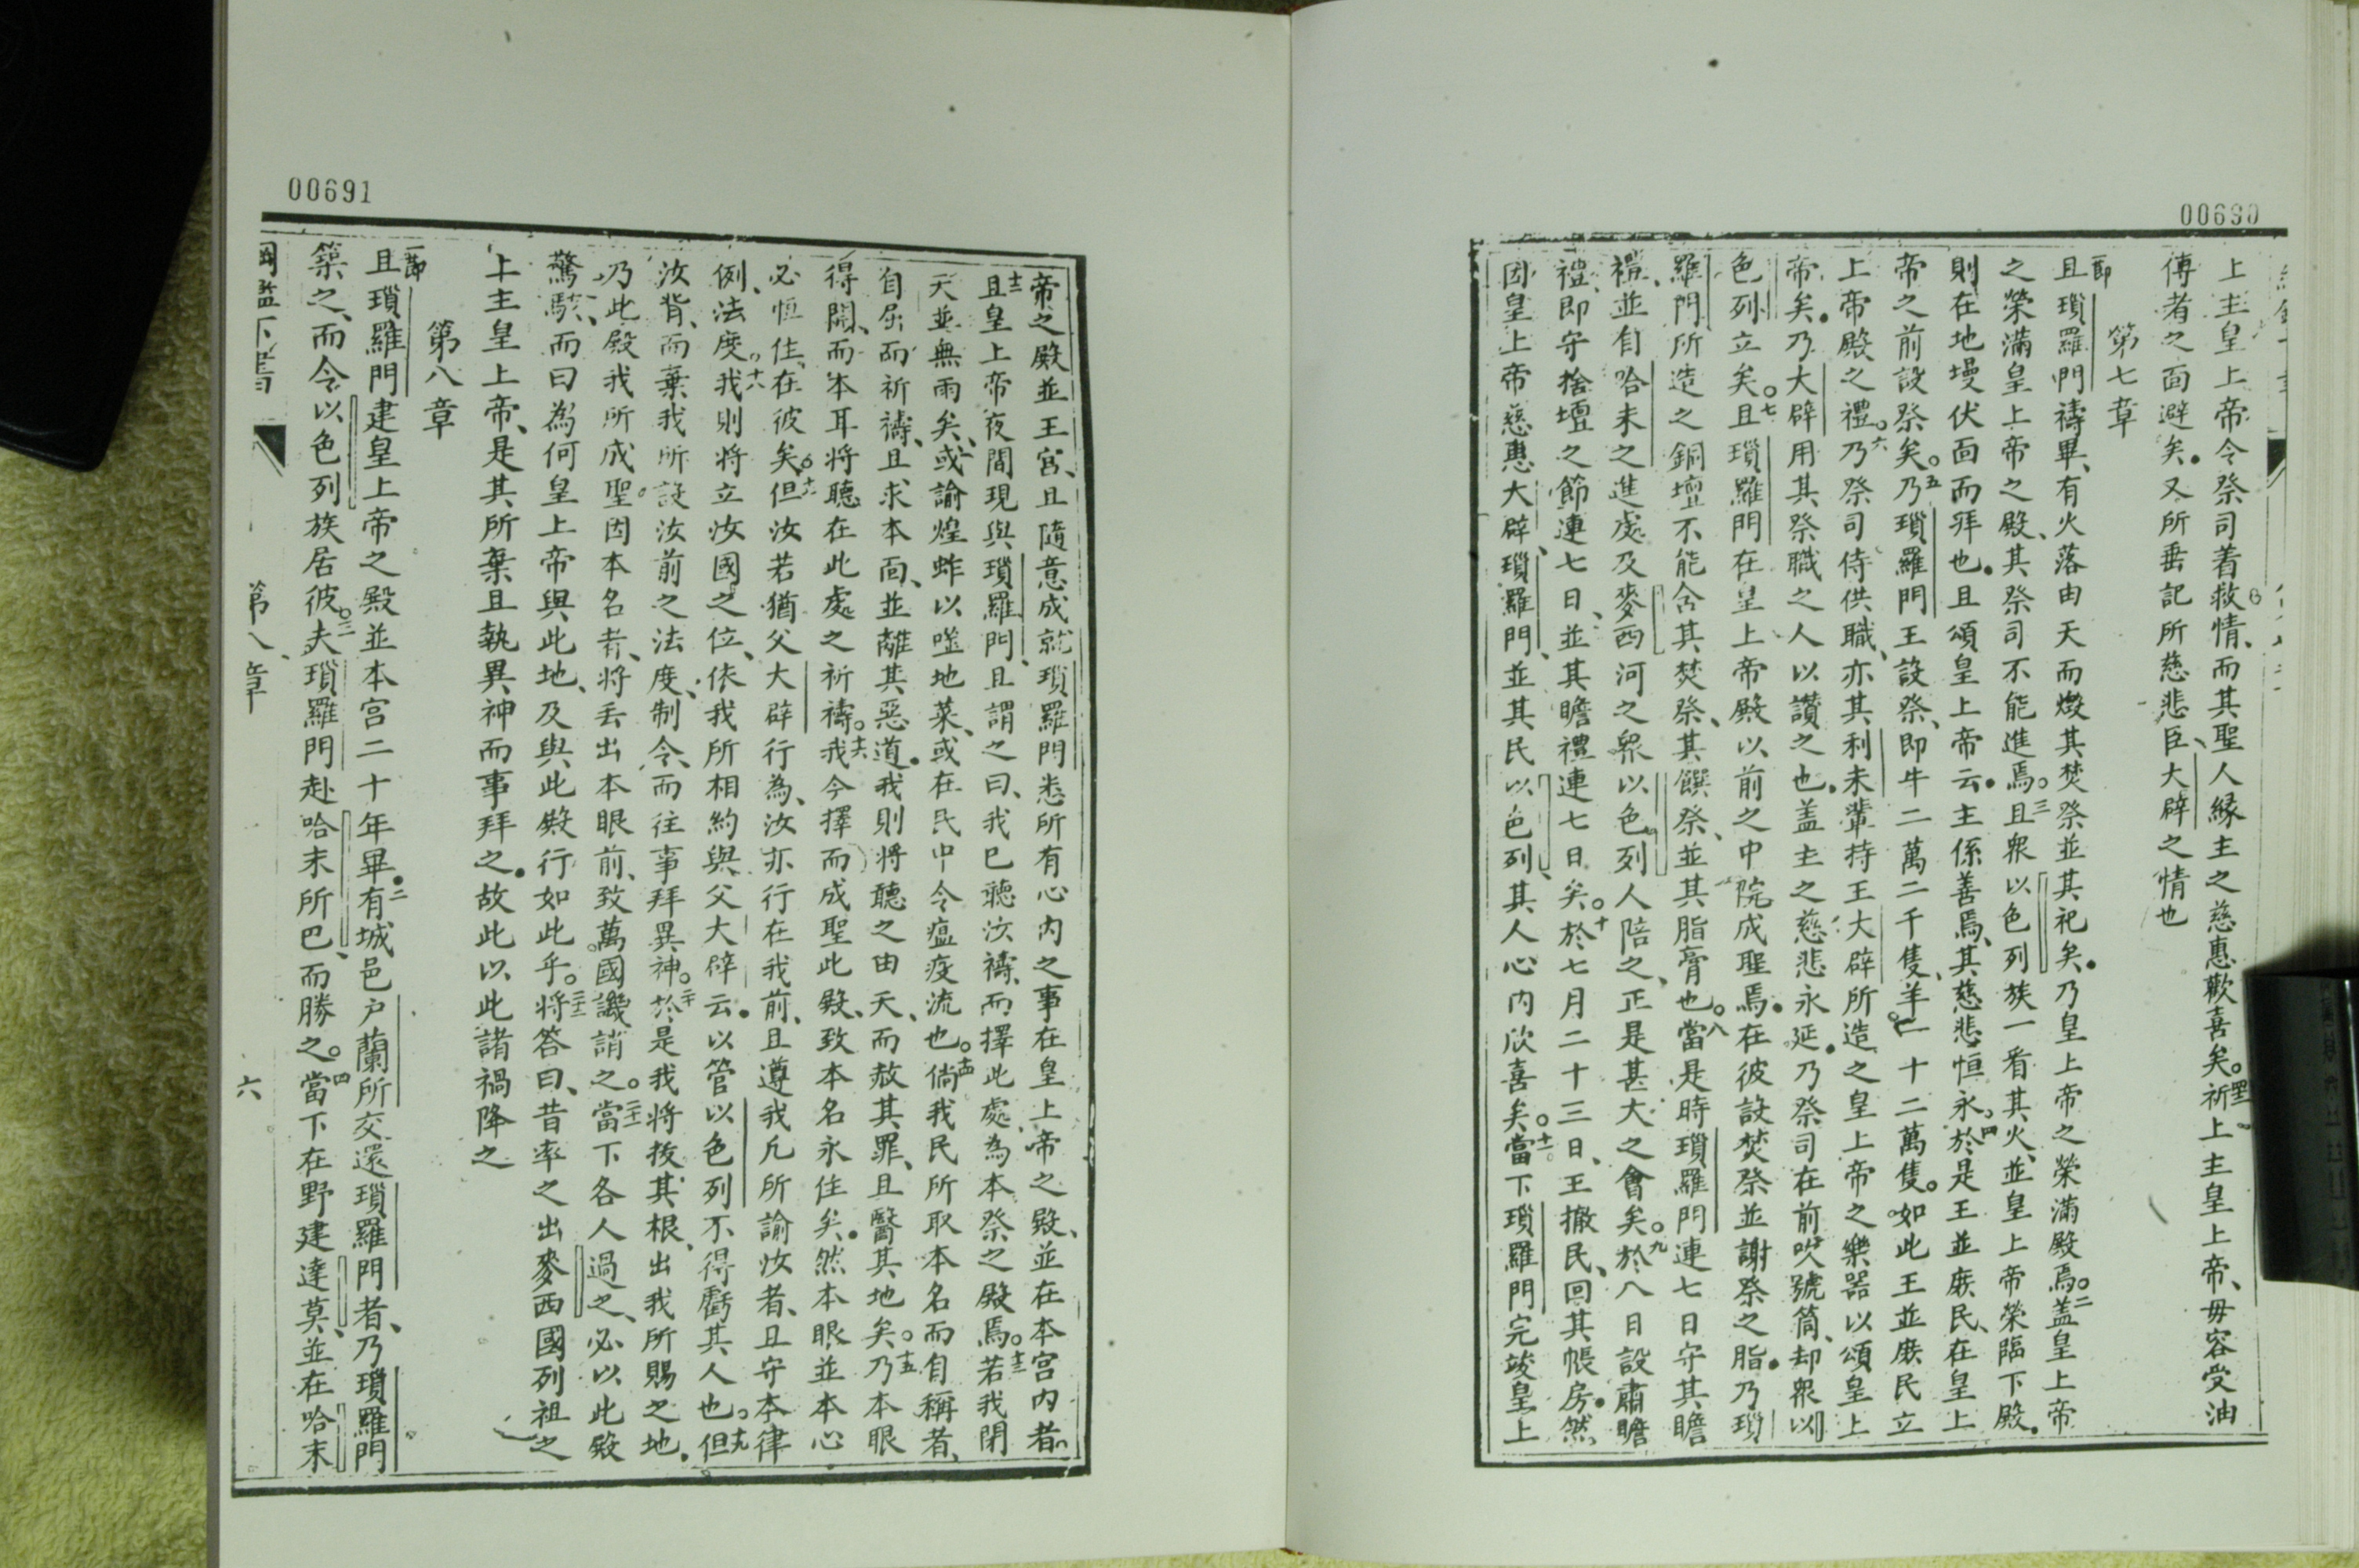 00690
上主皇上帝令祭司着救情、而其聖人緣主之慈惠歡喜矣。四二祈上主皇上帝、毋容受油
傅者之面避矣.又所垂記所慈悲臣、大辟之情也
第七章
一節且瑣羅門禱畢、有火落由天而燬其焚祭並其祀矣.乃皇上帝之榮滿殿焉。二蓋皇上帝
之榮滿皇上帝之殿、其祭司不能進焉。三且眾以色列族一看其火、並皇上帝榮臨下殿.
則在地墁伏面而拜也.且頌皇上帝云.主係善焉、其慈悲恒永。四於是王並庶民、在皇上
帝之前設祭矣。五乃瑣羅門王設祭、即牛二萬二千隻、羊一十二萬隻。如此王並庶民立
上帝殿之禮。六乃祭司侍供職、亦其利未輩持王大辟所造之皇上帝之樂器以頌皇上
帝矣.乃大辟用其祭職之人以讚之也.蓋主之慈悲永延.乃祭司在前吹號筒、却眾以
色列立矣。七且瑣羅門在皇上帝殿以前之中院成聖焉.在彼設焚祭並謝祭之脂.乃瑣
羅門所造之銅壇不能含其焚祭、其饌祭、並其脂膏也。八當是時瑣羅門連七日守其瞻
禮、並自哈未之進處及麥西河之眾以色列人陪之、正是甚大之會矣。九於八日設肅瞻
禮、即守捨壇之節連七日、並其瞻禮連七日矣。十於七月二十三日、王撤民、回其帳房.然
因皇上帝慈惠大辟、瑣羅門、並其民以色列、其人心内欣喜矣。十一當下瑣羅門完竣皇上
00691
帝之殿並王宮、且隨意成就瑣羅門悉所有心内之事在皇上帝之殿、並在本宮内者、
十二且皇上帝夜間現與瑣羅門、且謂之曰、我已聽汝禱、而擇此處、為本祭之殿焉。十三若我閉
天並無雨矣、或諭煌蚱以噬地菜、或在民中令瘟疫流也。十四倘我民所取本名而自稱者、
自屈而祈禱、且求本面、並離其惡道.我則將聽之由天、而赦其罪、且醫其地矣。十五乃本眼
得開、而本耳將聽在此處之祈禱。十六我今擇而成聖此殿、致本名永住矣.然本眼並本心
必恒住、在彼矣。十七但汝若猶父大辟行為、汝亦行在我前、且遵我凡所諭汝者、且守本律
例、法度。十八我則將立汝國之位、依我所相約與父大辟云.以管以色列不得虧其人也。十九但
汝背、而棄我所設汝前之法度、制令、而往事拜異神。二十於是我將拔其根、出我所賜之地.
乃此殿我所成聖因本名者、將丢出本眼前、致萬國譏誚之。二十一當下各人過之、必以此殿
驚駭、而曰為何皇上帝與此地、及與此殿行如此乎。二十二將答曰、昔率之出麥西國列祖之
上主皇上帝、是其所棄且執異神而事拜之.故此以此諸禍降之
第八章
一節且瑣羅門建皇上帝之殿並本宮二十年畢.二有城邑戶蘭所交還瑣羅門者、乃瑣羅門
築之、而令以色列族居彼。三夫瑣羅門赴哈末所巴、而勝之。四當下在野建達莫、並在哈末
第八章
六